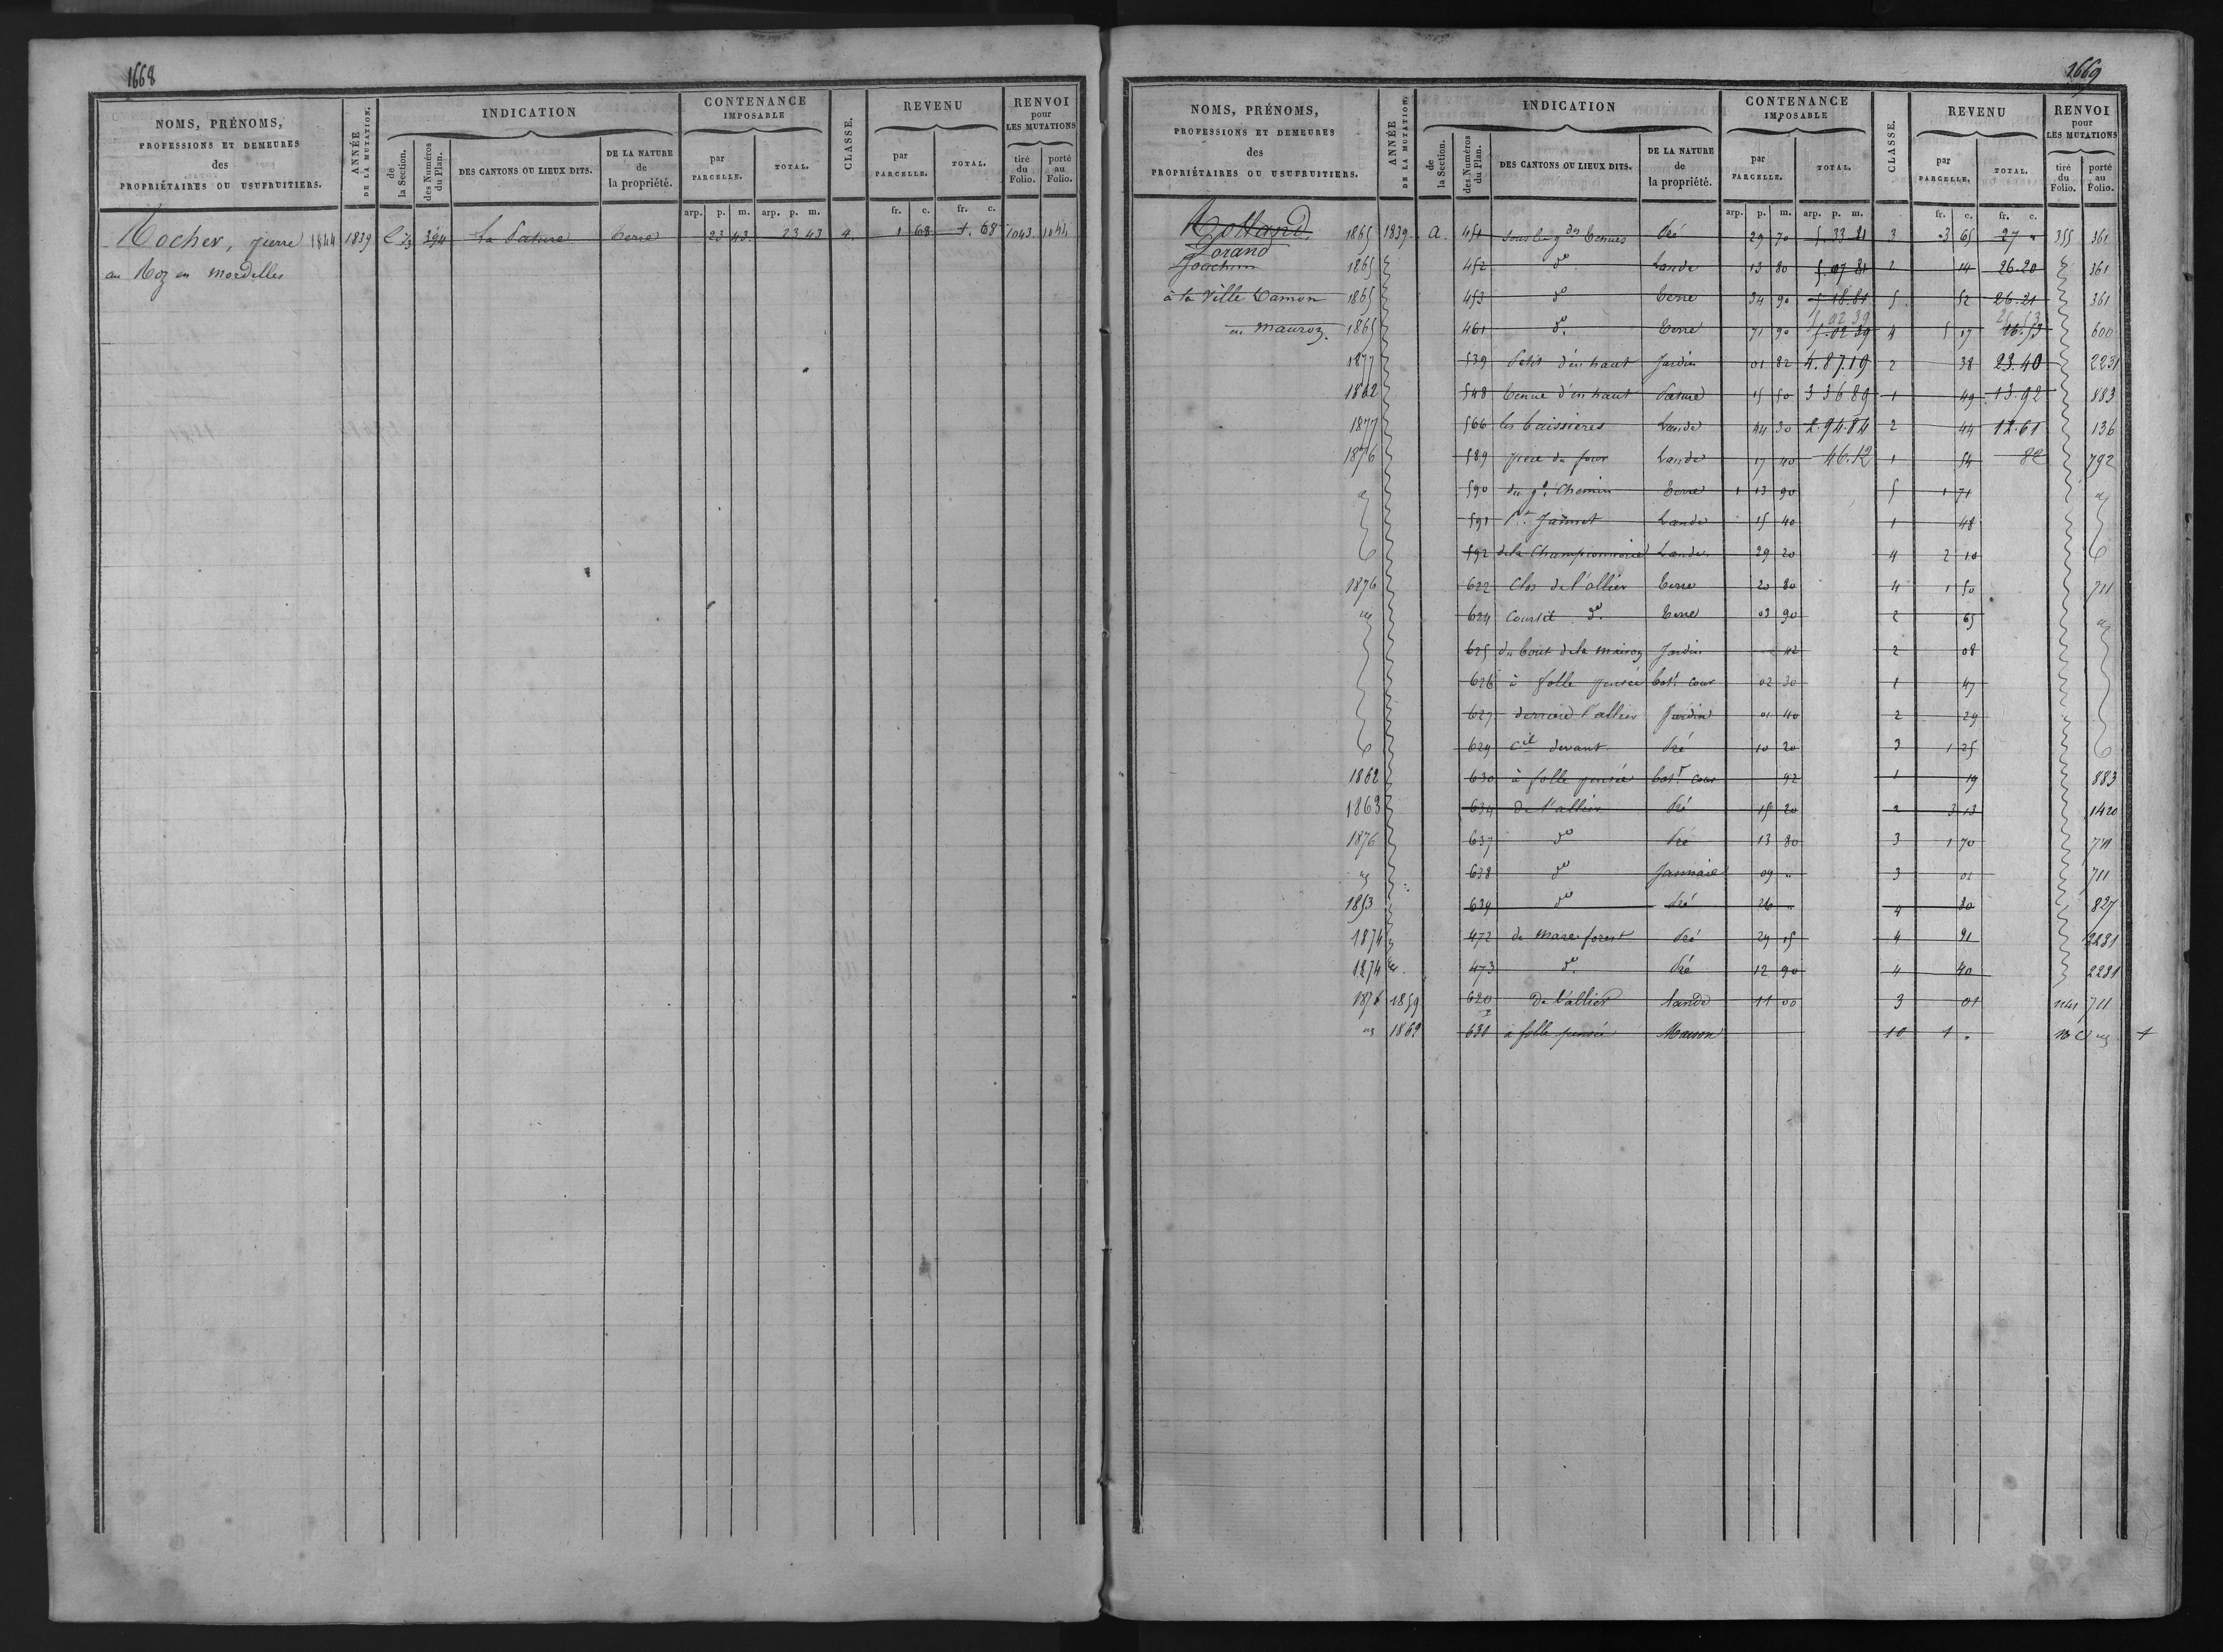 1668
NOMS, PRÉNOMS, PROFESSIONS ET DEMEURES des PROPRIÉTAIRES OU USUFRUITIERS.
ANNÉE DE LA MUTATION.
INDICATION
de la Section.
des Numéros du Plan.
DES CANTONS OU LIEUX DITS.
DE LA NATURE de la propriété.
CONTENANCE IMPOSABLE
par PARCELLE.
TOTAL.
CLASSE.
REVENU
par PARCELLE.
TOTAL.
RENVOI pour LES MUTATIONS
tiré du Folio.
porté au Folio.
arp. p. m. arp. p. m. fr. c. fr. c.
Rocher, pierre 1844 1839 394 La Pature Terre 23 43 23 43 4. 1 68 1. 68 1043 1044
au Roz en Mordelles
1669
NOMS, PRÉNOMS, PROFESSIONS ET DEMEURES des PROPRIÉTAIRES OU USUFRUITIERS.
ANNÉE DE LA MUTATION.
INDICATION
de la Section.
des Numéros du Plan.
DES CANTONS OU LIEUX DITS.
DE LA NATURE de la propriété.
CONTENANCE IMPOSABLE
par PARCELLE.
TOTAL.
CLASSE.
REVENU
par PARCELLE.
TOTAL.
RENVOI pour LES MUTATIONS
tiré du Folio.
porté au Folio.
arp. p. m. arp. p. m. fr. c. fr. c.
Rolland, 1865 1839. A. 451 Pré 29 70 5. 33. 81 3 3 65 27 " 355 361
Lorand
Joachim 1865 452 do Lande 13 80 5. 07 81 2 14 26.20 361
à la Ville Damon 1865 453 do Terre 34 90 5 18.81 5 52 26.21 361
5 02 39 26.53
en Mauron. 1865 461 do. Terre 71 90 5.02 39 4 5 17 600
1877 539 Petit d'en haut Jardin 01 82 4.87.19 2 38 23.40 2231
1862 548 Tenue d'en haut Pature 15 50 3 36 89 1 49 13.92 883
1877 566 les baissieres Lande 44 30 2.94.84 2 44 12.61 136
1876 589 Lande 17 40 46.12 1 54 82 792
590 du gd. Chemin Terre 1 13 90 5 1 71
591 Lande 15 40 1 48
592 Lande 29 20 4 2 10
1876 622 Clos de l'allier Terre 20 80 4 1 50 711
624 Courtil do. Terre 03 90 2 65
625 du bout de la maison Jardin 42 2 08
626 à folle pensée batt. cour 02 30 1 47
627 derriere l'allier Jardin 01 40 2 29
629 devant Pré 10 20 3 1 25
1862 630 à folle pensée batt. cour 92 1 19 883
1863 634 de l'allier Pré 15 20 2 3 13 1420
1876 637 do Pré 13 80 3 1 70 711
638 do Jannaie 09 " 3 01 711
1853 639 do Pré 26 " 4 80 827
1874 472 Pré 29 15 4 91 2231
1874 473 do. Pré 12 90 4 40 2231
1876 1859 620 De l'allier Lande 11 00 3 01 1141 711
1869 630 à folle pensée Maison 10 1 "